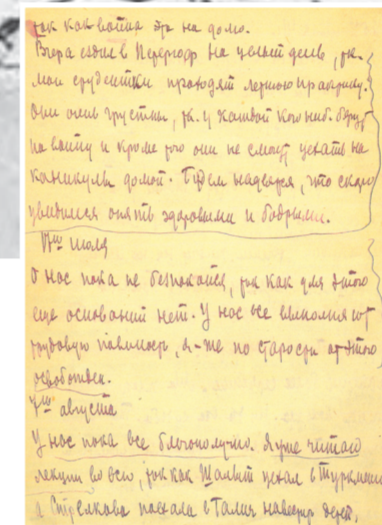 так как война эта на долго.
Вчера ездила в Петергоф на целый день, т.к.
мои студентки проходят летнюю практику.
Они очень грустны, т.к. у каждой кого-ниб. берут
на войну и кроме того они не смогут уехать на
каникулы домой. Будем надеяться, что скоро
увидимся опять здоровыми и бодрыми.
17го июля
О нас пока не беспокойся, так как для этого
еще оснований нет. У нас все выполняют
трудовую повинность, я-же по старости от этого
освобожден.
7го августа
У нас пока все благополучно. Я уже читаю
лекции во всю, так как Шалыт уехал в Туркмению
а Стрелкова поехала в Галич навестить детей,